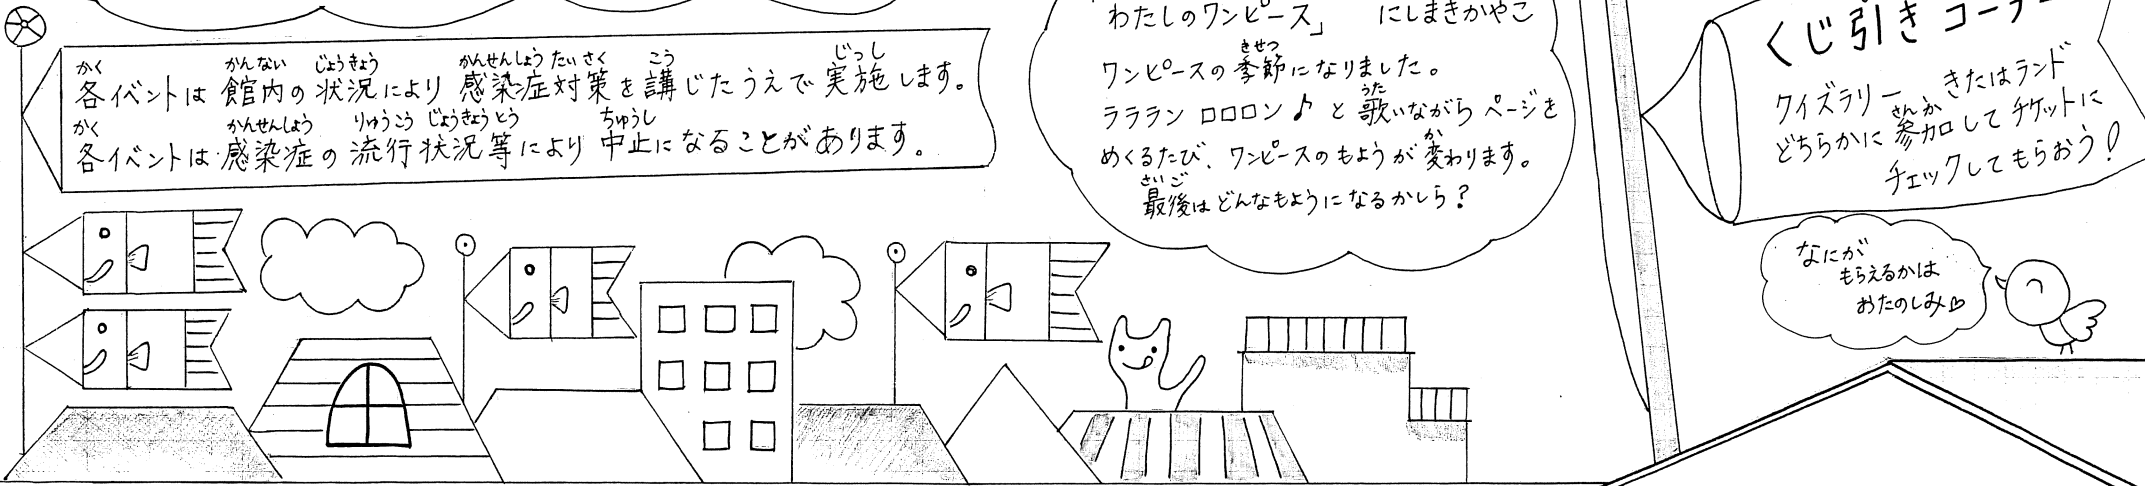 各イベントは館内の状況により感染症対策を講じたうえで実施します。
各イベントは感染症の流行状況等により中止になることがあります。
「わたしのワンピース」 にしまきかやこ
ワンピースの季節になりました。
ラララン ロロロン♪と歌いながらページを
めくるたび、ワンピースのもようが変わります。
最後はどんなもようになるかしら?
くじ引きコーナー
クイズラリー きたはランド
どちらかに参加してチケットに
チェックしてもらおう!
なにが
もらえるかは
おたのしみ♡